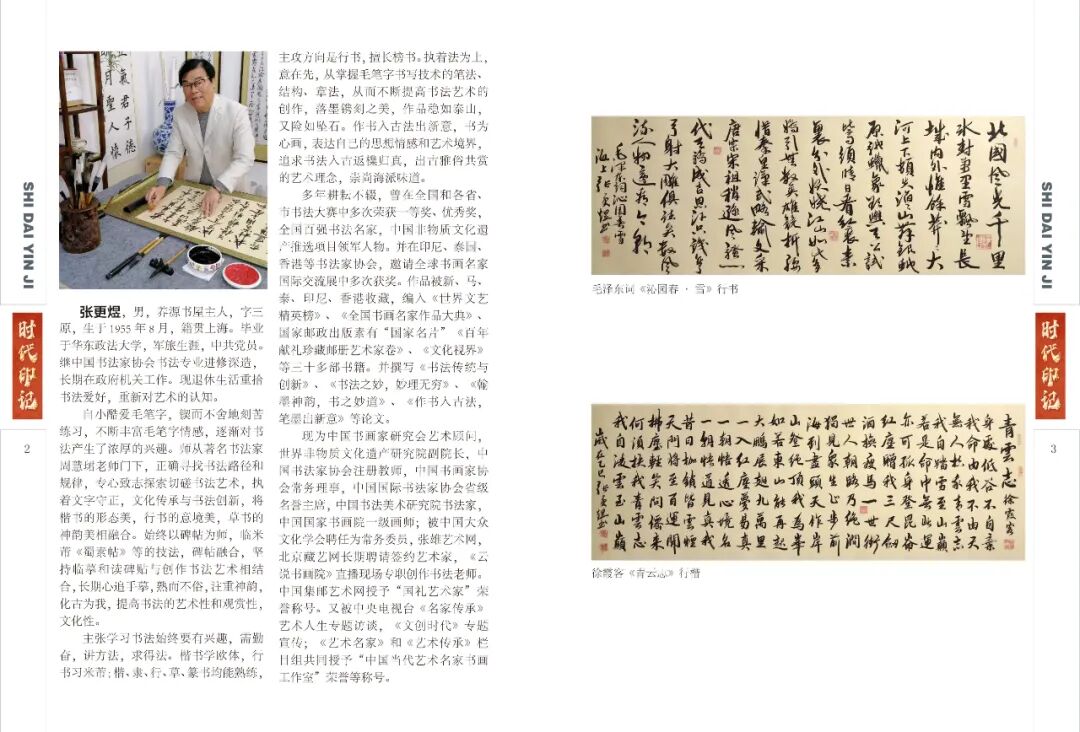 SHI DAI YIN JI
时代印记
2
张更煜，男，养源书屋主人，字三
原，生于1955年8月，籍贯上海。毕业
于华东政法大学，军旅生涯，中共党员。
继中国书法家协会书法专业进修深造，
长期在政府机关工作。现退休生活重拾
书法爱好，重新对艺术的认知。
自小酷爱毛笔字，锲而不舍地刻苦
练习，不断丰富毛笔字情感，逐渐对书
法产生了浓厚的兴趣。师从著名书法家
周慧珺老师门下，正确寻找书法路径和
规律，专心致志探索切磋书法艺术，执
着文字守正，文化传承与书法创新，将
楷书的形态美，行书的意境美，草书的
神韵美相融合。始终以碑帖为师，临米
芾《蜀素帖》等的技法，碑帖融合，坚
持临摹和读碑贴与创作书法艺术相结
合，长期心追手摹，熟而不俗，注重神韵，
化古为我，提高书法的艺术性和观赏性，
文化性。
主张学习书法始终要有兴趣，需勤
奋，讲方法，求得法。楷书学欧体，行
书习米芾；楷、隶、行、草、篆书均能熟练，
主攻方向是行书，擅长榜书。执着法为上，
意在先，从掌握毛笔字书写技术的笔法、
结构、章法，从而不断提高书法艺术的
创作，落墨镌刻之美，作品稳如泰山，
又险如坠石。作书入古法出新意，书为
心画，表达自己的思想情感和艺术境界，
追求书法入古返樸归真，出古雅俗共赏
的艺术理念，崇尚海派味道。
多年耕耘不辍，曾在全国和各省、
市书法大赛中多次荣获一等奖、优秀奖，
全国百强书法名家，中国非物质文化遗
产推选项目领军人物。并在印尼、泰国、
香港等书法家协会，邀请全球书画名家
国际交流展中多次获奖。作品被新、马、
泰、印尼、香港收藏，编入《世界文艺
精英榜》、《全国书画名家作品大典》、
国家邮政出版素有“国家名片”《百年
献礼珍藏邮册艺术家卷》、《文化视界》
等三十多部书籍。并撰写《书法传统与
创新》、《书法之妙，妙理无穷》、《翰
墨神韵，书之妙道》、《作书入古法，
笔墨出新意》等论文。
现为中国书画家研究会艺术顾问，
世界非物质文化遗产研究院副院长，中
国书法家协会注册教师，中国书画家协
会常务理事，中国国际书法家协会省级
名誉主席，中国书法美术研究院书法家，
中国国家书画院一级画师；被中国大众
文化学会聘任为常务委员，张雄艺术网，
北京藏艺网长期聘请签约艺术家，《云
说书画院》直播现场专职创作书法老师。
中国集邮艺术网授予“国礼艺术家”荣
誉称号。又被中央电视台《名家传承》
艺术人生专题访谈，《文创时代》专题
宣传；《艺术名家》和《艺术传承》栏
目组共同授予“中国当代艺术名家书画
工作室”荣誉等称号。
北國风光千里
冰封万里雪飘望长
城内外惟餘莽莽大
河上下顿失滔滔山舞银蛇
原驰蜡象欲與天公试
比高须晴日看红装素
裹分外妖娆江山如此多
娇引无数英雄竞折腰
惜秦皇汉武略输文采
唐宗宋祖稍逊风骚一
代天骄成吉思汗只识弯
弓射大雕俱往矣数风
流人物还看今朝
毛泽东词沁园春雪
毛泽东词《沁园春 · 雪》行书
青雲志 徐霞客
身處低谷不自棄
我命由我不由天
無人扶我青雲志
我自踏雪至山巔
若是命中無此運
亦可孤身登昆侖
紅塵贈我三尺劍
酒換瘦馬一世街
世人朝路乃純澗
獨見象生止步前
海到盡頭天作岸
山登絶頂我為峯
如若東山能再起
大鵬展翅九萬里
一入紅塵夢易真
一朝悟道見真我
昔日枷鎖皆雲煙
天門將至百運開
拂塵輕笑問儒來
我自凌雲玉山巔
徐霞客《青云志》行楷
SHI DAI YIN JI
时代印记
3